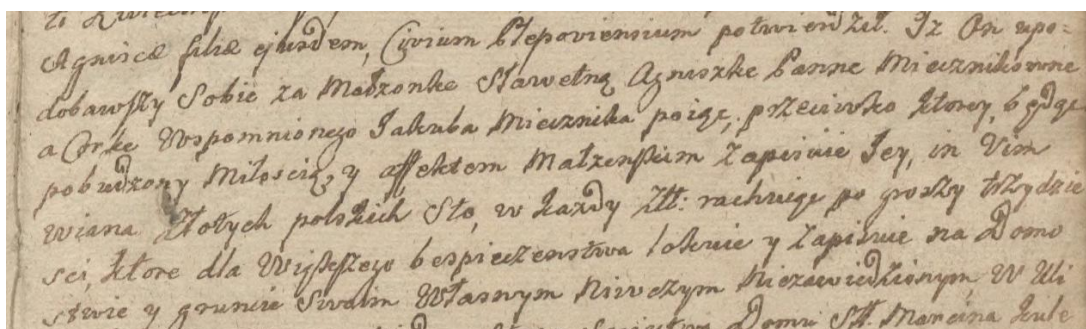 Agniscæ filiæ ejusdem, Civium Klepoviensium potwierdził. Iz On upo-
dobawszy Sobie za Małzonke Sławetną Agniszke Panne Miecznikowne
a Corke Wspomnionego Jakuba Miecznika poiąc, przeciwko ktorey, będąc
pobudzony Miłoscią, y affektem Małzenskim Zapisuie Jey, in Vim
Wiana Złotych polskich Sto, w kazdy Złł: rachuiąc po groszy trzydzie
sci, ktore dla Większego bespieczenstwa lokuie y Zapisuie na Domo
stwie y gruncie Swoim Własnym Niwczym Niezawiedzionym W Uli
Domu Sł. Marcina Kule